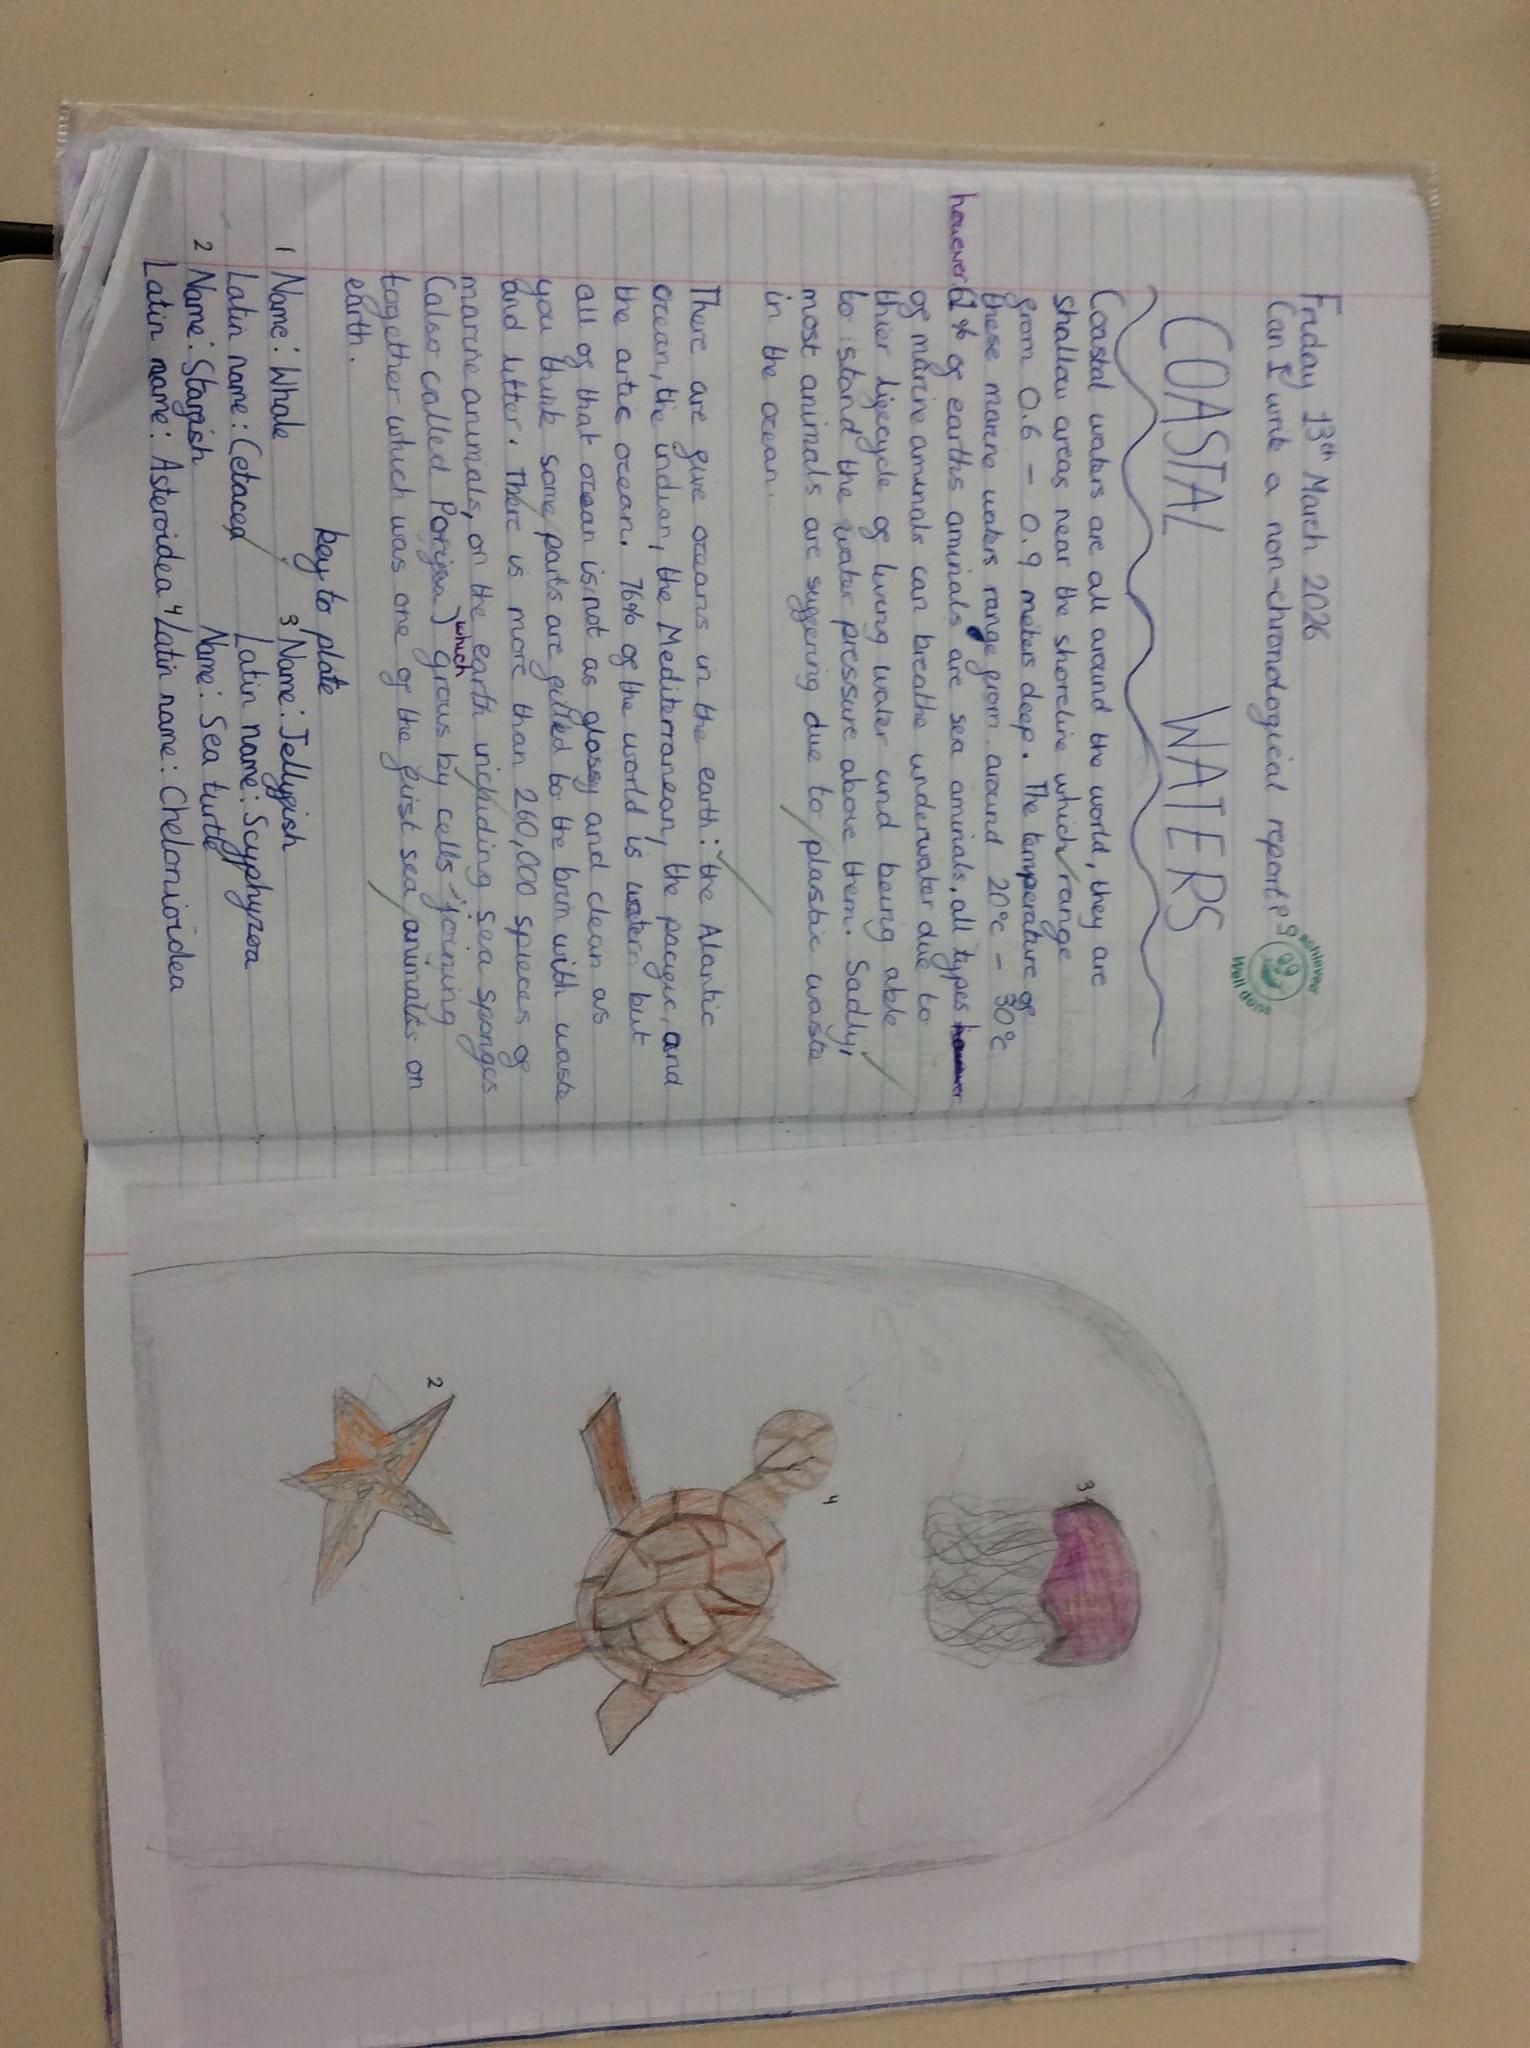 Friday 13th March 2026
Can I write a non-chronological report?
achieving
Well done
COASTAL WATERS
Coastal waters are all around the world, they are
shallow areas near the shoreline which range
from 0.6 - 0.9 meters deep. The temperature of
these marine waters range from around 20°c - 30°c
however 61% of earths aminals are sea aminals. all types however
of marine aminals can breathe underwater due to
thier lifecycle of living water and being able
to stand the water pressure above them. Sadly,
most animals are suffering due to plastic waste
in the ocean.
There are five oceans in the earth: the Alantic
ocean, the indian, the Mediterranean, the pacific, and
the artic ocean. 76% of the world is water but
all of that ocean is not as glossy and clean as
you think some parts are filled to the brim with waste
and litter. There is more than 260,000 spieces of
marine animals, on the earth including sea sponges
(also called Porifsa) which grows by cells joining
together which was one of the first sea animals on
earth.
key to plate
1 Name: Whale
Latin name: Cetacea
2 Name: Starfish
Latin name: Asteroidea
3 Name: Jellyfish
Latin name: Scyphyzoa
4 Name: Sea turtle
Latin name: Chelonioidea
3
4
2